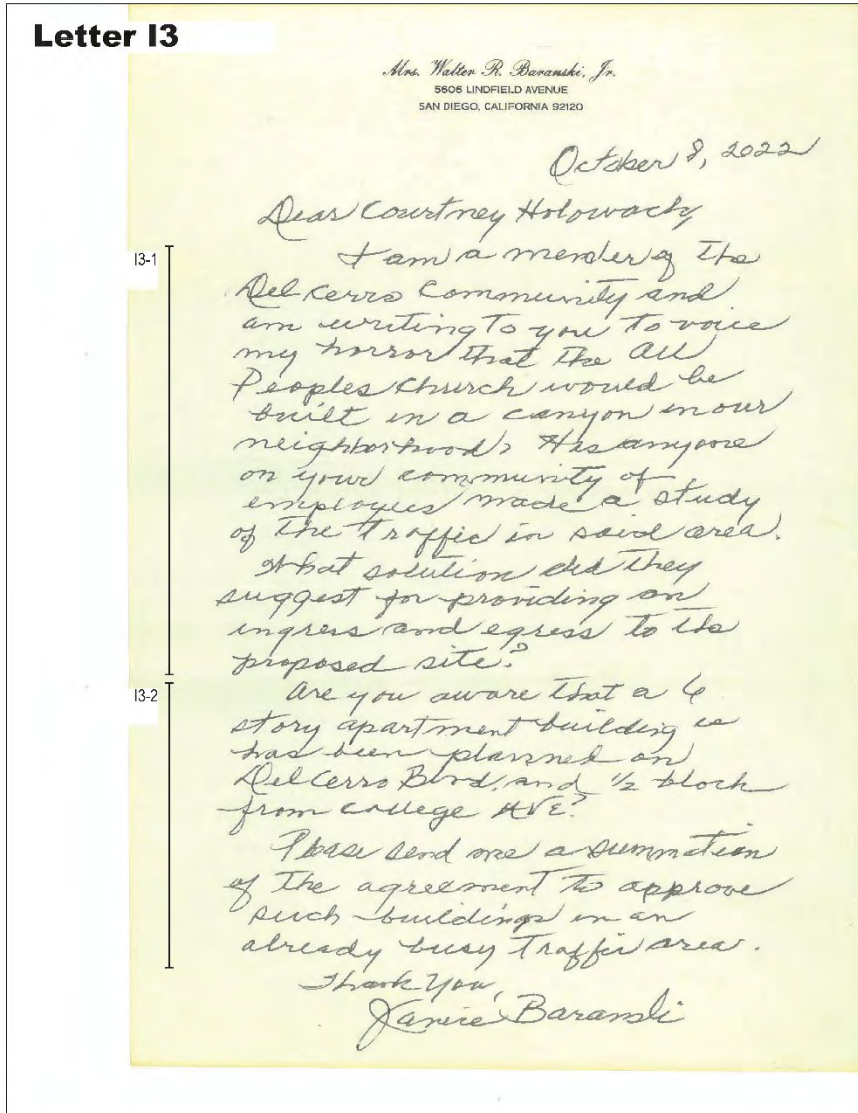 Letter I3
Mrs. Walter R. Baranski, Jr.
5606 LINDFIELD AVENUE
SAN DIEGO, CALIFORNIA 92120
October 8, 2022
Dear Courtney Holowach,
I3-1
I am a member of the
Del Cerro Community and
am writing to you to voice
my horror that the All
Peoples Church would be
built in a canyon in our
neighborhood? Has anyone
on your community of
employees made a study
of the traffic in said area.
What solution did they
suggest for providing an
ingress and egress to the
proposed site?
I3-2
Are you aware that a 6
story apartment building is
has been planned on
Del Cerro Blvd. and 1/2 block
from College AVE?
Please send me a summation
of the agreement to approve
such buildings in an
already busy traffic area.
Thank You,
Janice Baranski